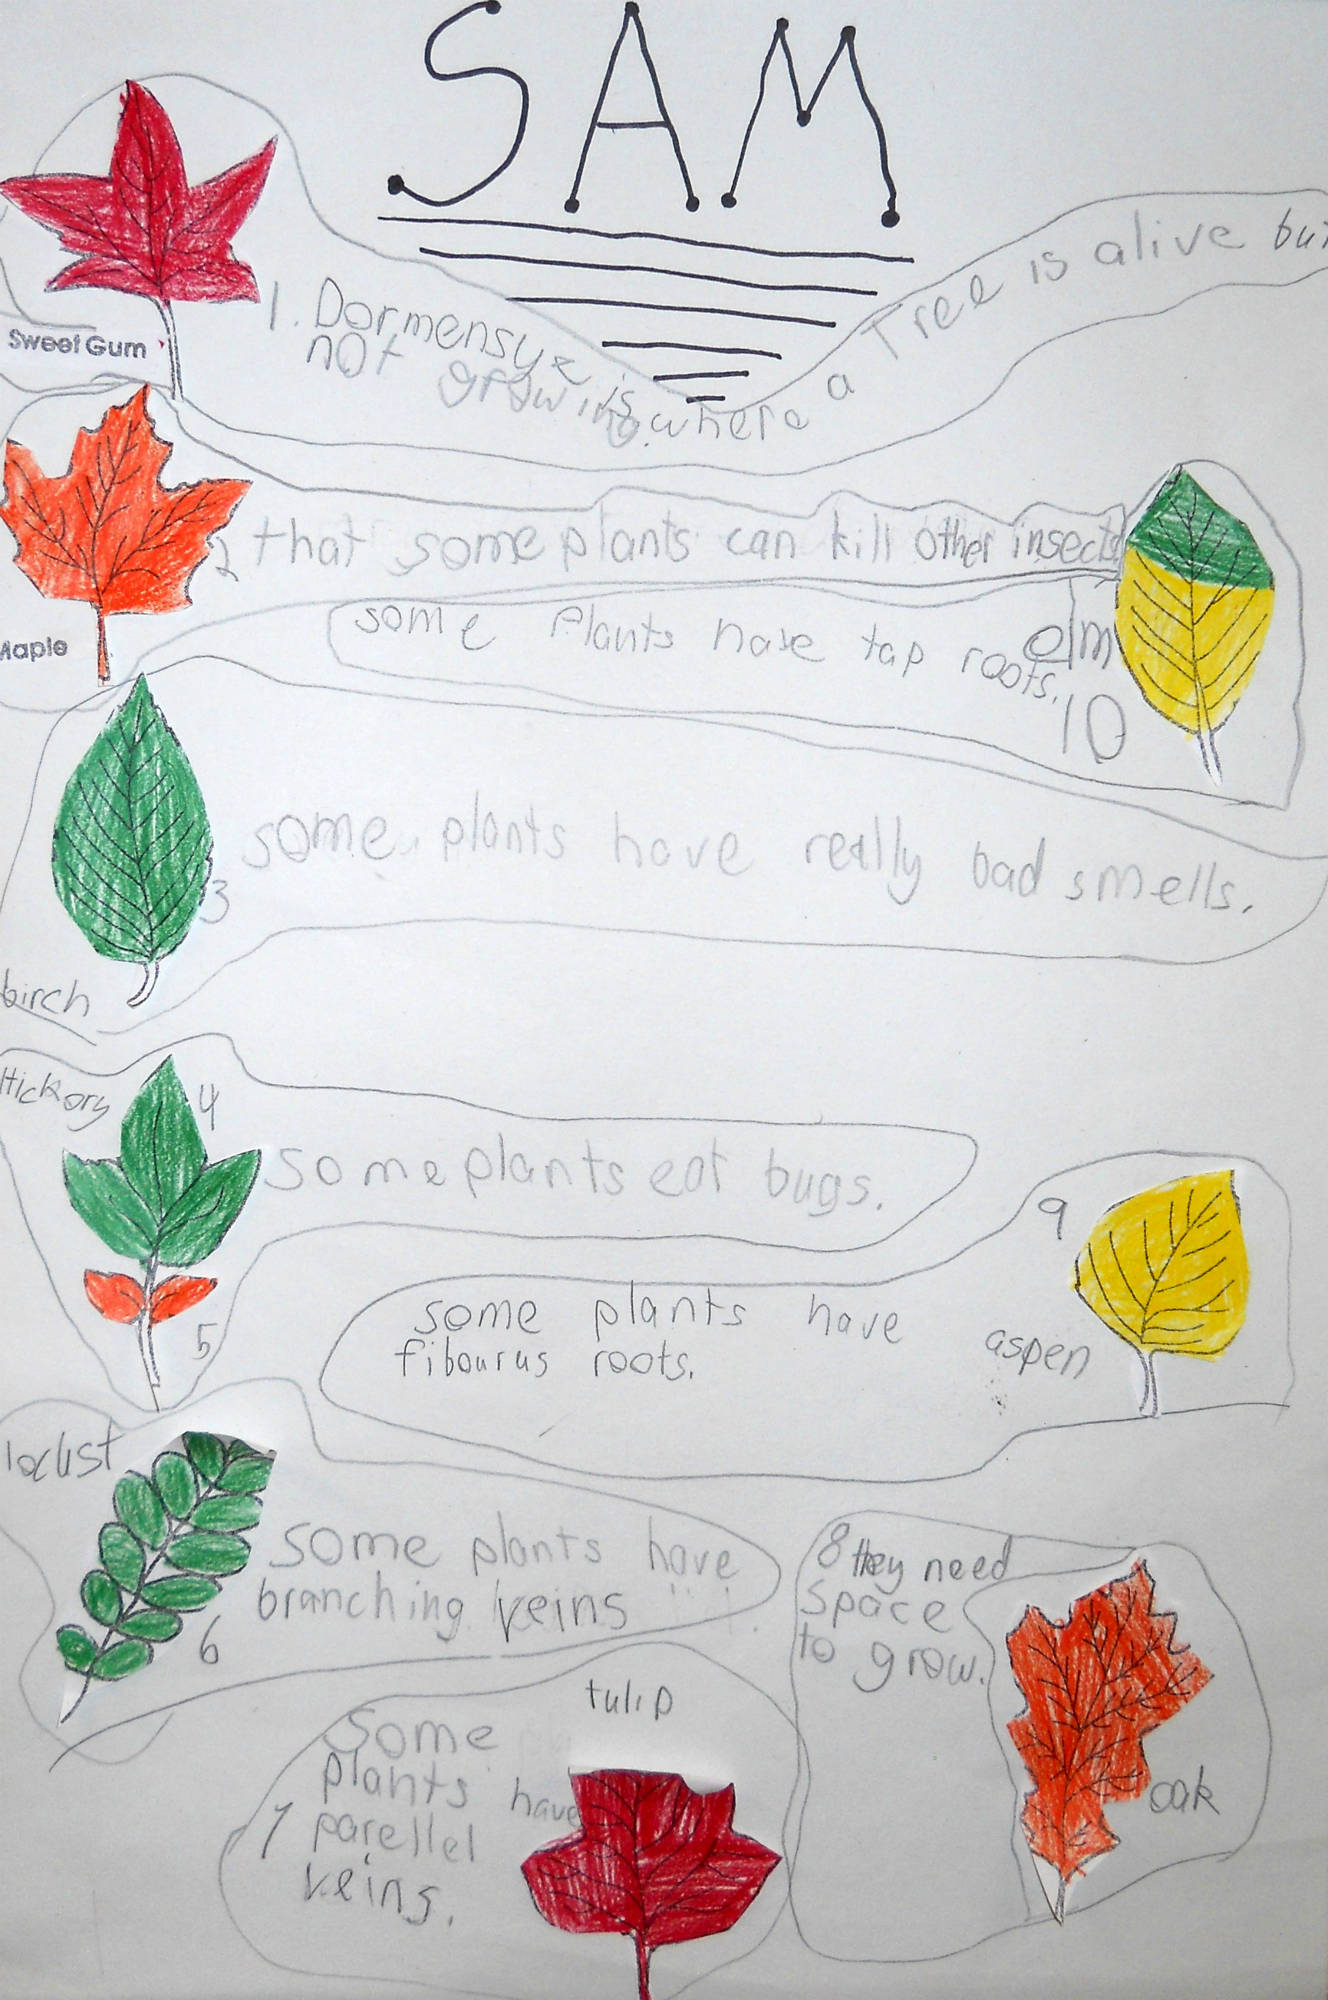 SAM
Sweet Gum
1. Dormensye is where a Tree is alive but
not growing.
Maple
2 that some plants can kill other insects
some plants have tap roots.
elm
10
birch
3 some plants have really bad smells.
Hickory
4
some plants eat bugs.
5
9
some plants have
fibourus roots.
aspen
locust
some plants have
branching veins
6
8 they need
space
to grow.
oak
tulip
7
some
plants have
parellel
veins.